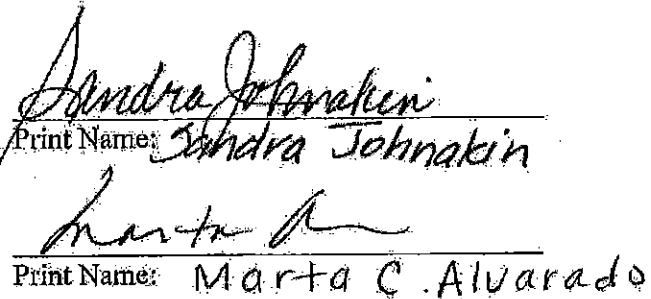 Sandra Johnakin
Print Name: Sandra Johnakin
Marta A
Print Name: Marta C. Alvarado